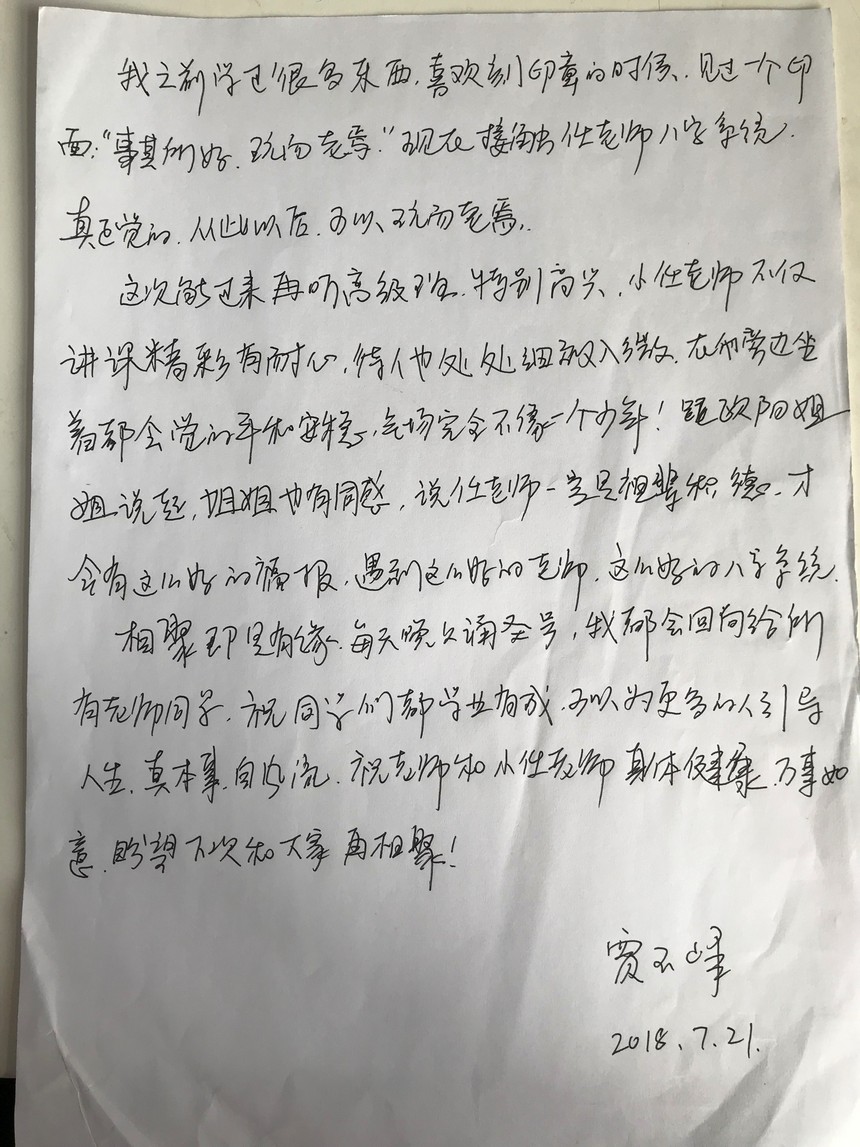 我之前学过很多东西，喜欢刻印章的时候，见过一个印
面：“事其所好，玩而老焉。”现在接触任老师八字系统，
真正觉的，从此以后，可以玩而老焉。
这次能过来再听高级班，特别高兴，小任老师不仅
讲课精彩有耐心，待人也处处细致入微，在他旁边坐
着都会觉的平和安稳，气场完全不像一个少年！跟欧阳姐
姐说起，姐姐也有同感，说任老师一定是祖辈积德，才
会有这么好的福报，遇到这么好的老师，这么好的八字系统。
相聚即是有缘，每天晚上诵圣号，我都会回向给所
有老师同学，祝同学们都学业有成，可以为更多的人引导
人生，真本事，自风流，祝老师和小任老师身体健康，万事如
意，盼望下次和大家再相聚！
贾
峰
2018.7.21.